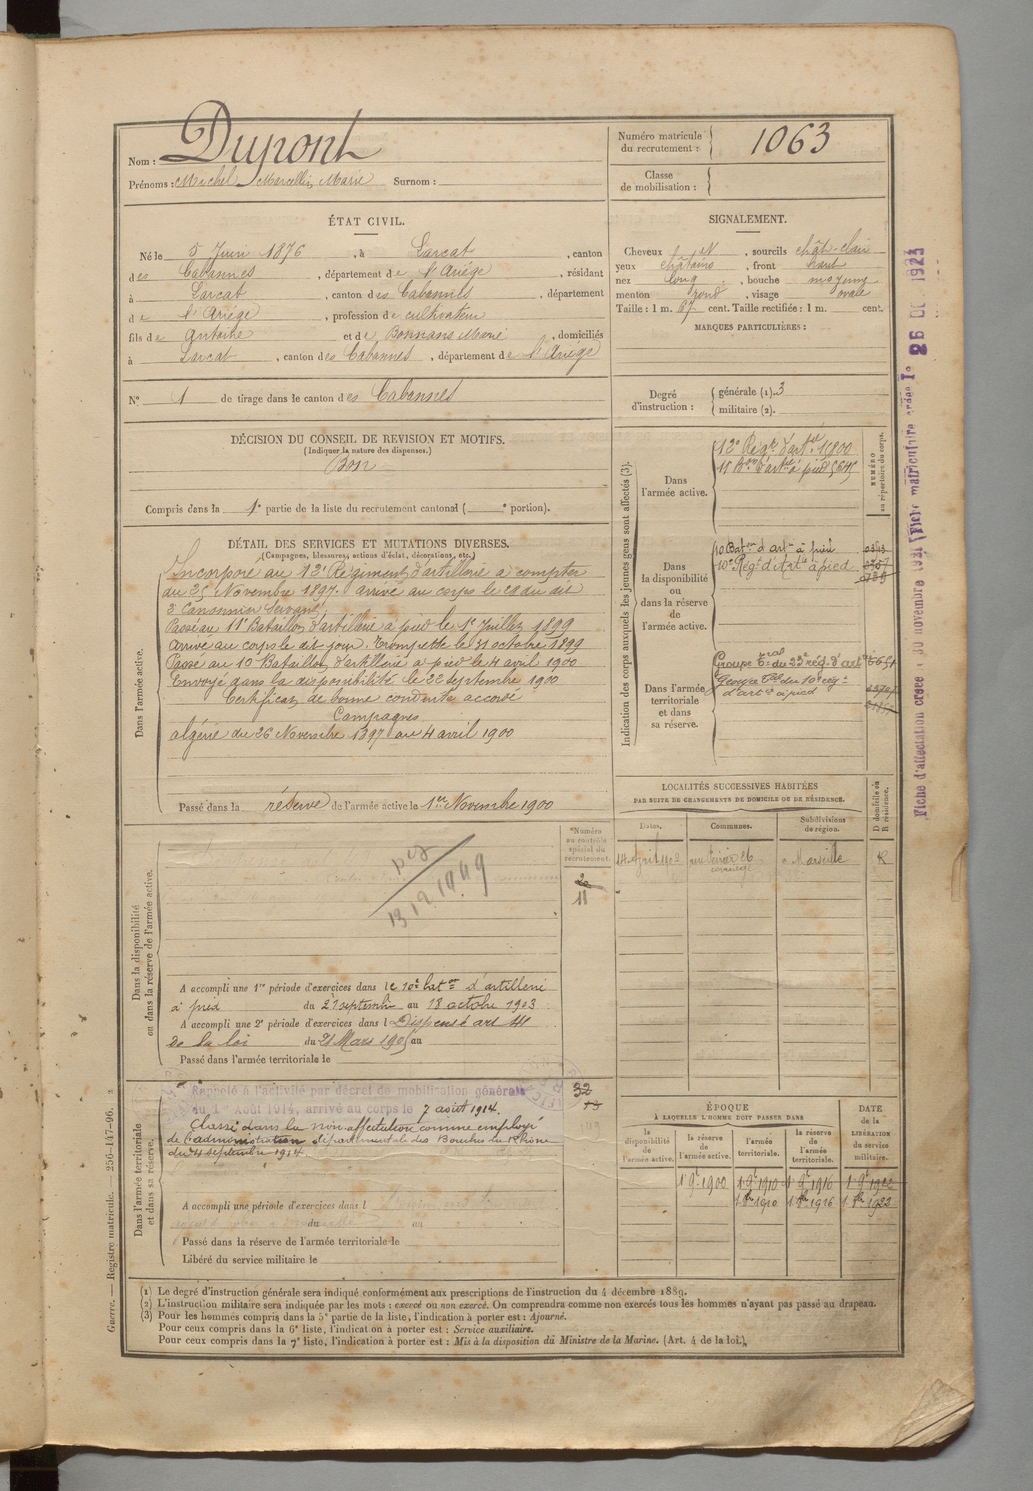 Nom : Dupont
Prénoms : Michel Marcellin Marie Surnom :
Numéro matricule du recrutement : 1063
Classe de mobilisation :
ÉTAT CIVIL.
Né le 5 Juin 1876, à Larcat, canton
des Cabannes, département de l'Ariége, résidant
à Larcat, canton des Cabannes, département
de l'Ariége, profession de cultivateur
fils de Antoine et de Bonnans Marie, domiciliés
à Larcat, canton des Cabannes, département de l'Ariége
N° 1 de tirage dans le canton des Cabannes
SIGNALEMENT.
Cheveux sourcils chât-clair
yeux châtains, front haut
nez long, bouche moyenne
menton rond, visage ovale
Taille : 1 m. 67 cent. Taille rectifiée : 1 m. cent.
MARQUES PARTICULIÈRES :
Degré d'instruction : générale (1). 3
militaire (2).
DÉCISION DU CONSEIL DE REVISION ET MOTIFS.
(Indiquer la nature des dispenses.)
Bon
Compris dans la 1e partie de la liste du recrutement cantonal ( e portion).
DÉTAIL DES SERVICES ET MUTATIONS DIVERSES.
(Campagnes, blessures, actions d'éclat, décorations, etc.)
Dans l'armée active.
Incorporé au 12e Régiment d'artillerie à compter
du 25 Novembre 1897. arrivé au corps le dit
2e Canonnier Servant.
Passé au 11e Bataillon d'artillerie à pied le 1er Juillet 1899
Arrivé au corps le dit jour. Trompette le 31 octobre 1899
Passé au 10 Bataillon d'artillerie à pied le 4 avril 1900
Envoyé dans la disponibilité le 22 septembre 1900
Certificat de bonne conduite accordé
Campagnes
Algérie du 26 Novembre 1897 au 4 avril 1900
Passé dans la réserve de l'armée active le 1er Novembre 1900
Indication des corps auxquels les jeunes gens sont affectés (3).
NUMÉRO au répertoire du corps.
Dans l'armée active.
12e Régt d'artie 11800
11 Bon d'artie à pied 5645
Dans la disponibilité ou dans la réserve de l'armée active.
10 Baton d'artie à pied
10e Régt d'Artie à pied
Dans l'armée territoriale et dans sa réserve.
Groupe tal du 23e rég. d'art
Groupe tal du 10e régt
d'artie à pied
LOCALITÉS SUCCESSIVES HABITÉES
PAR SUITE DE CHANGEMENTS DE DOMICILE OU DE RÉSIDENCE.
D domicile ou R résidence.
Dates. Communes. Subdivisions de région.
14 Avril 1902 Marseille R
Dans la disponibilité ou dans la réserve de l'armée active.
Numéro au contrôle spécial du recrutement.
20
11
13.12.1949
A accompli une 1re période d'exercices dans le 10e baton d'artillerie
à pied du 21 septembre au 18 octobre 1903
A accompli une 2e période d'exercices dans l Dispensé art
de la loi du 21 Mars 1905 au
Passé dans l'armée territoriale le
Dans l'armée territoriale et dans sa réserve.
Rappelé à l'activité par décret de mobilisation générale
du 1er Août 1914, arrivé au corps le 7 août 1914.
Classé dans la non affectation comme employé
de l'administration départementale des Bouches du Rhône
du 4 septembre 1914.
32
A accompli une période d'exercices dans l
du au
Passé dans la réserve de l'armée territoriale le
Libéré du service militaire le
ÉPOQUE
À LAQUELLE L'HOMME DOIT PASSER DANS
la disponibilité de l'armée active. la réserve de l'armée active. l'armée territoriale. la réserve de l'armée territoriale.
DATE de la LIBÉRATION du service militaire.
1 9e 1900 1 9e 1910 1 9e 1916 1 9e 1922
1 8bre 1910 1 8bre 1916 1 8bre 1922
(1) Le degré d'instruction générale sera indiqué conformément aux prescriptions de l'instruction du 4 décembre 1889.
(2) L'instruction militaire sera indiquée par les mots : exercé ou non exercé. On comprendra comme non exercés tous les hommes n'ayant pas passé au drapeau.
(3) Pour les hommes compris dans la 5e partie de la liste, l'indication à porter est : Ajourné.
Pour ceux compris dans la 6e liste, l'indication à porter est : Service auxiliaire.
Pour ceux compris dans la 7e liste, l'indication à porter est : Mis à la disposition du Ministre de la Marine. (Art. 4 de la loi.)
Guerre. — Registre matricule. — 256-147-96.
Fiche d'affectation créée le 30 novembre 1931 Fiche matriculaire créée le 26 1923